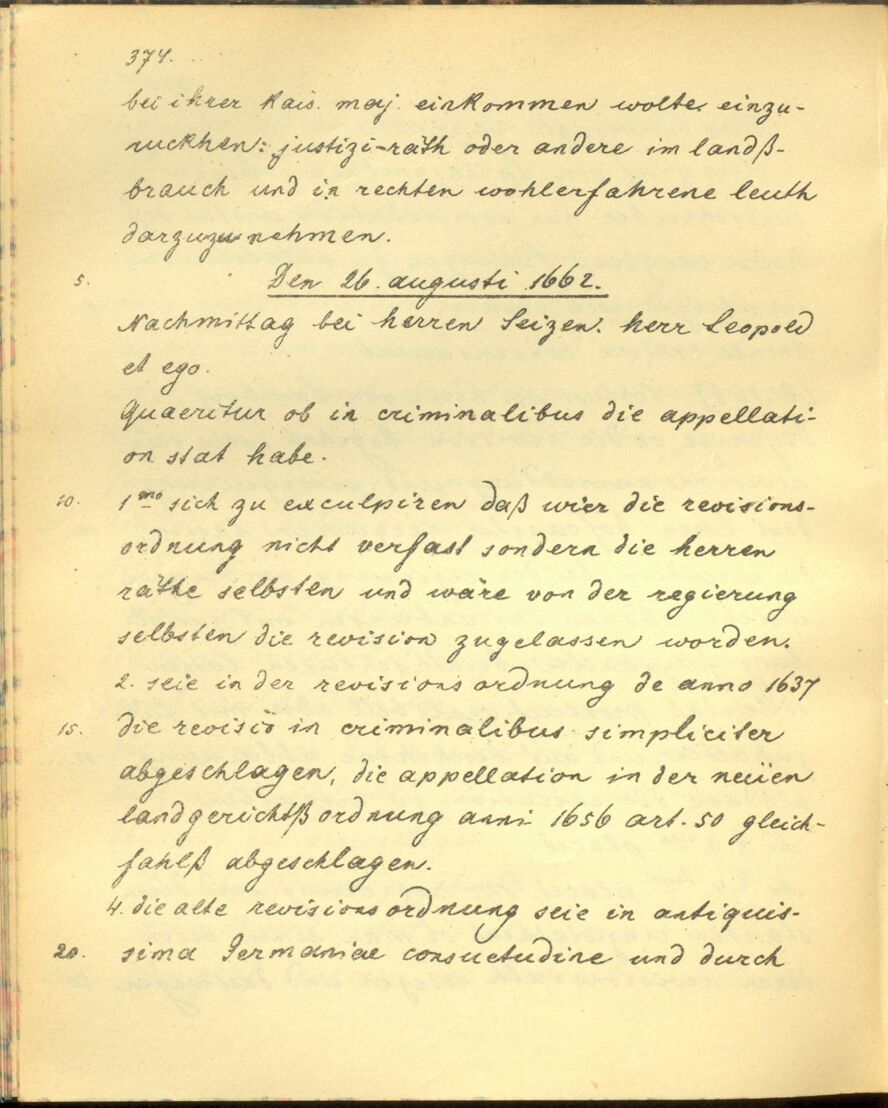 374.
bei ihrer kais. maj. einkommen wolte einzu-
ruckhen: justizi-räth oder andere im landß-
brauch und in rechten wohlerfahrene leuth
darzuzunehmen.
5. Den 26. augusti 1662.
Nachmittag bei herren Seizen. herr Leopold
et ego.
Quaeritur ob in criminalibus die appellati-
on stat habe.
10. 1mo sich zu exculpiren daß wier die revisions-
ordnung nicht verfast sondern die herren
räthe selbsten und wäre von der regierung
selbsten die revision zugelassen worden.
2. seie in der revisions ordnung de anno 1637
15. die revisio in criminalibus simpliciter
abgeschlagen, die appellation in der neüen
landgerichtß ordnung anni 1656 art. 50 gleich-
fahlß abgeschlagen.
4. die alte revisions ordnung seie in antiquis-
20. sima Germaniae consuetudine und durch